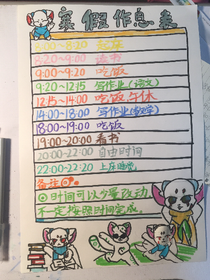 寒假作息表
8:00~8:20 起床
8:20~9:00 读书
9:00~9:20 吃饭
9:20~12:15 写作业(语文)
12:15~14:00 吃饭,午休
14:00~18:00 写作业(数学)
18:00~19:00 吃饭
19:00~20:00 看书
20:00~22:00 自由时间
22:00~22:20 上床睡觉
备注
①时间可以少量改动
不一定按照时间完成。